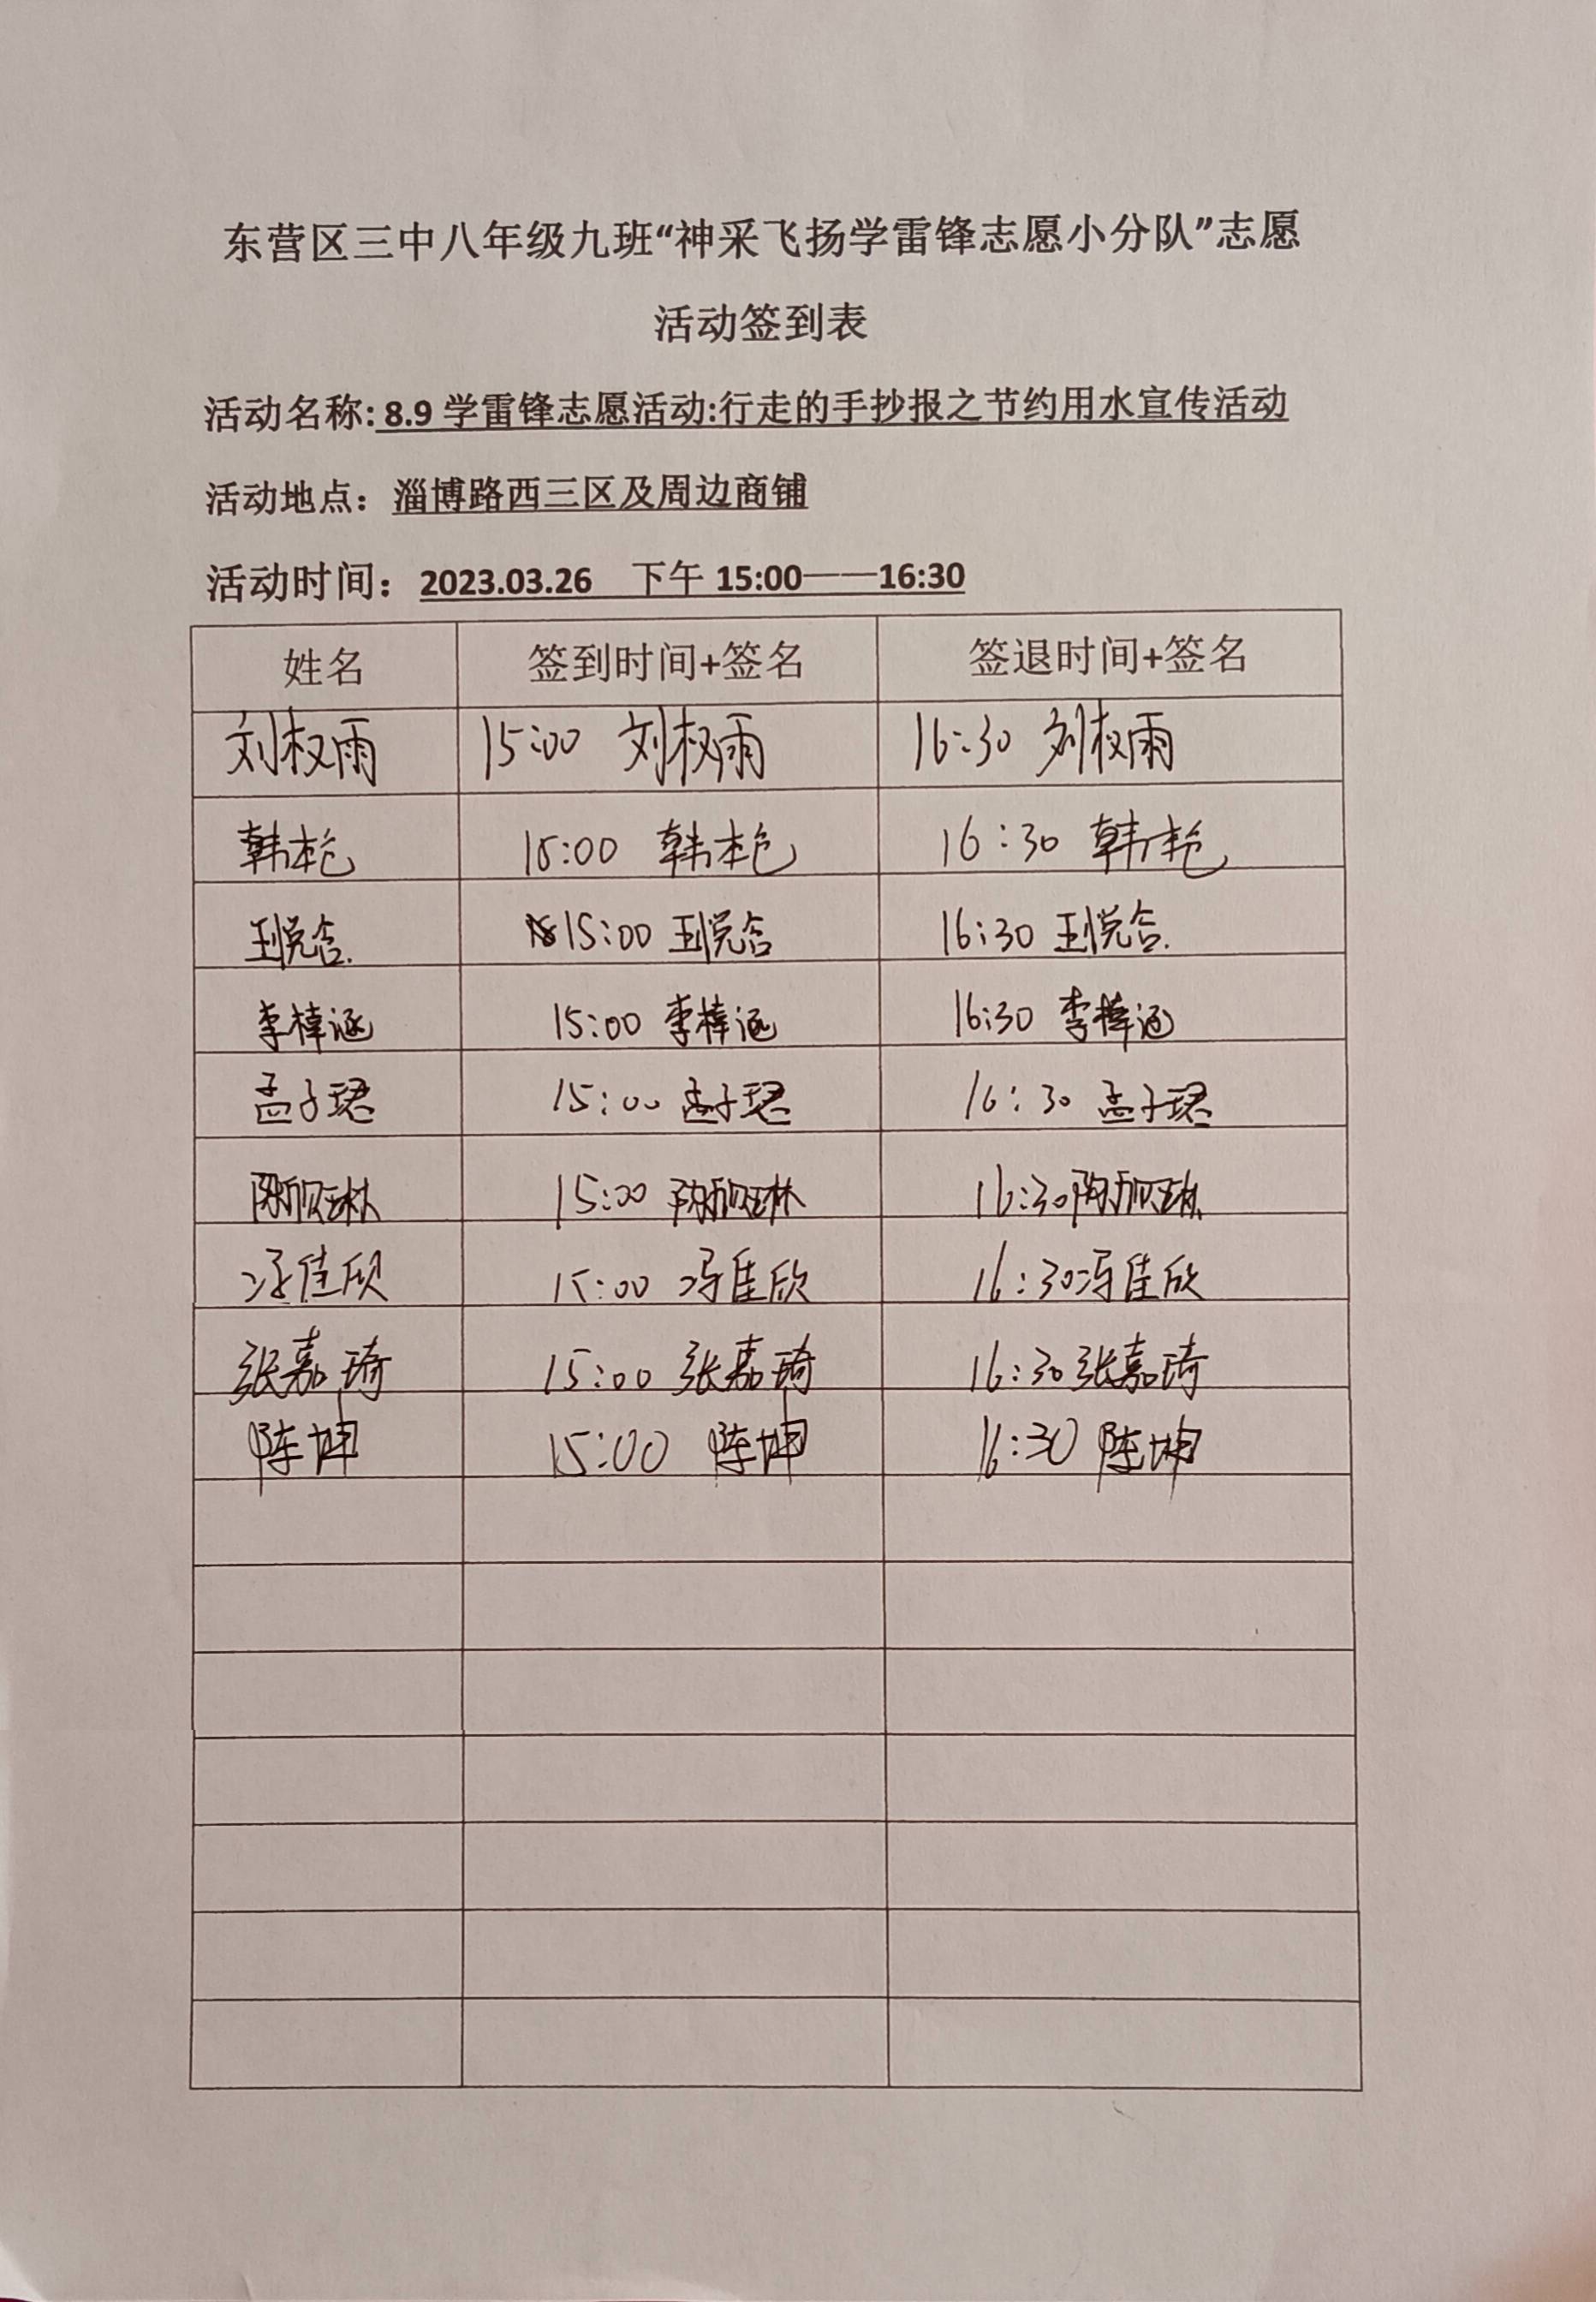 东营区三中八年级九班“神采飞扬学雷锋志愿小分队”志愿
活动签到表
活动名称: 8.9 学雷锋志愿活动:行走的手抄报之节约用水宣传活动
活动地点：淄博路西三区及周边商铺
活动时间：2023.03.26 下午 15:00——16:30
姓名 签到时间+签名 签退时间+签名
刘权雨 15:00 刘权雨 16:30 刘权雨
韩 15:00 韩 16:30 韩
王悦含 15:00 王悦含 16:30 王悦含
李樟涵 15:00 李樟涵 16:30 李樟涵
孟子珺 15:00 孟子珺 16:30 孟子珺
15:00 16:30
冯佳欣 15:00 冯佳欣 16:30 冯佳欣
张嘉琦 15:00 张嘉琦 16:30 张嘉琦
陈坤 15:00 陈坤 16:30 陈坤